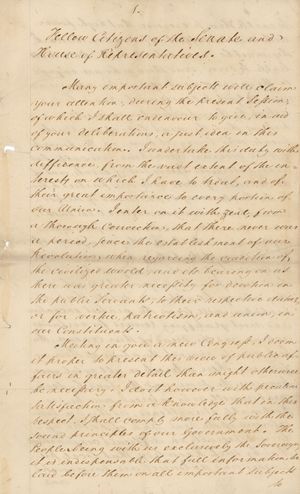 1
Fellow Citizens of the Senate and
House of Representatives.
Many important subjects will claim
your attention, during the present Session,
of which I shall endeavour to give, in aid
of your deliberations, a just idea in this
communication. I undertake this duty with
diffidence, from the vast extent of the in-
terests on which I have to treat, and of
their great importance to every portion of
our Union. I enter on it with zeal, from
a thorough Conviction, that there never was
a period, since the establishment of our
Revolution, when regarding the condition of
the civilized world, and its bearing on us
there was greater necessity for devotion in
the public Servants, to their respective duties,
or for virtue, patriotism, and union, in
our Constituents.
Meeting in you a new Congress, I deem
it proper to present this view of public af-
fairs in greater detail than might otherwise
be necessary. I do it however with peculiar
Satisfaction, from a Knowledge that in this
respect, I shall comply more fully with the
Sound principles of our Government. The
People being with us exclusively the Sovereign,
it is indispensable that full information be
laid before them on all important Subjects
to